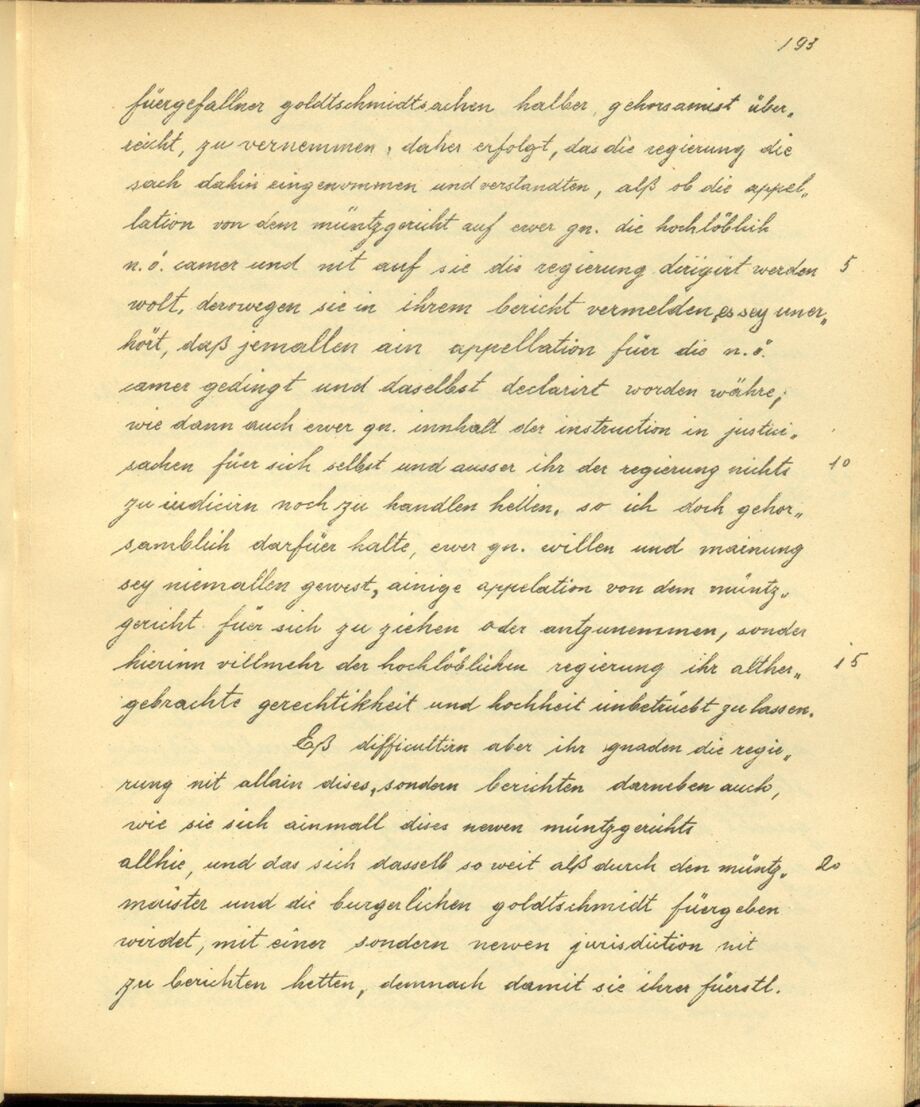 193
füergefallner goldtschmidtsachen halber, gehorsamist über„
reicht, zu vernemmen, daher erfolgt, das die regierung die
sach dahin eingenommen und verstandten, alß ob die appel„
lation von dem müntzgericht auf ewer gn. die hochlöblich
n.ö. camer und nit auf sie die regierung dirigirt werden 5
wolt, derowegen sie in ihrem bericht vermelden, es sey uner„
hört, daß jemallen ain appellation für die n.ö.
camer gedingt und daselbst declarirt worden währe,
wie dann auch ewer gn. innhalt der instruction in justici„
sachen füer sich selbst und ausser ihr der regierung nichts 10
zu iudicirn noch zu handlen hetten, so ich doch gehor„
samblich darfüer halte, ewer gn. willen und mainung
sey niemallen gewest, ainige appelation von dem müntz„
gericht füer sich zu ziehen oder antzunemmen, sonder
hierinn villmehr der hochlöblichen regierung ihr alther„ 15
gebrachte gerechtikheit und hochheit unbetrüebt zu lassen.
Eß difficultirn aber ihr gnaden die regie„
rung nit allain dises, sondern berichten darneben auch,
wie sie sich ainmall dises newen müntzgerichts
allhie, und das sich dasselb so weit alß durch den müntz„ 20
maister und die burgerlichen goldtschmidt füergeben
wirdet, mit einer sondern newen jurisdiction nit
zu berichten hetten, demnach damit sie ihrer fürstl.